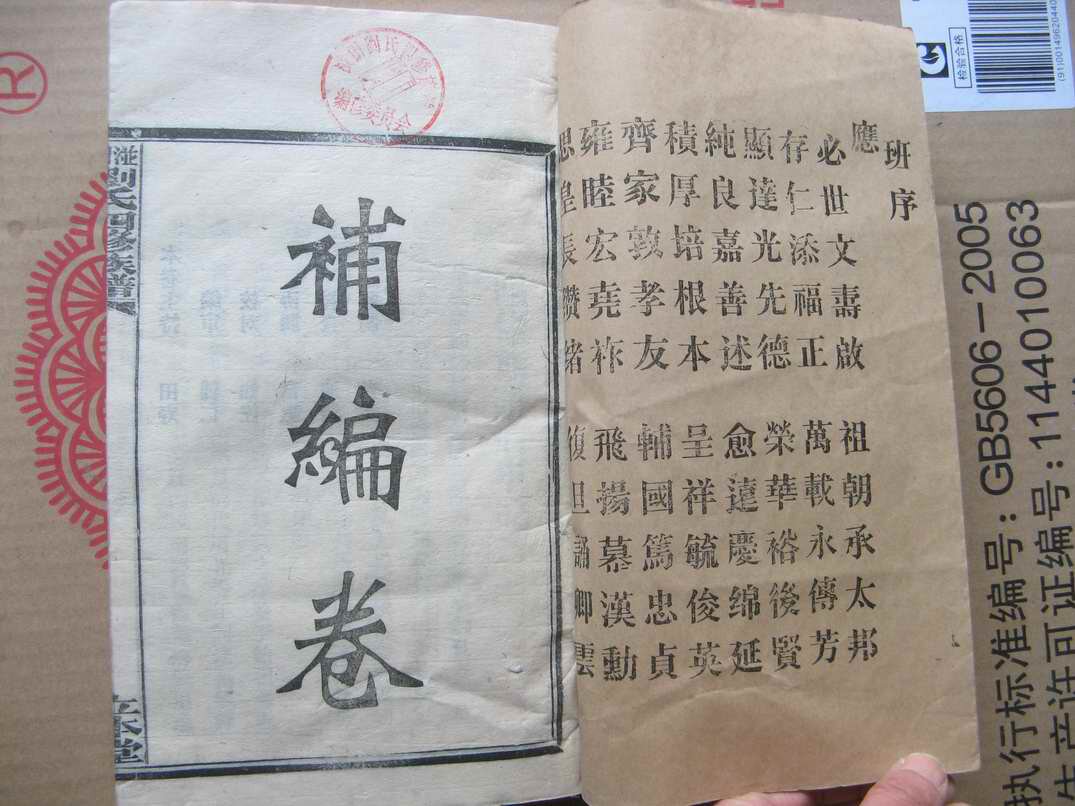 班序
應
必世文壽啟 祖朝承太邦
存仁添福正 萬載永傳芳
顯達光先德 榮華裕後賢
純良嘉善述 愈遠慶綿延
積厚培根本 呈祥毓俊英
齊家敦孝友 輔國篤忠貞
雍睦宏堯祚 飛揚慕漢勳
思皇長纘緒 復旦卿雲
補編卷
劉氏四修族譜
立本堂
编修委員会
执行标准编号:GB5606-2005
生产许可证编号:11440100063
检验合格
(91)00149620440